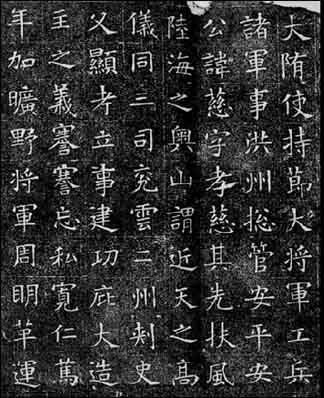 大隋使持節大將軍工兵
諸軍事洪州総管安平安
公諱慈字孝慈其先扶風
陸海之奧山謂近天之高
儀同三司兖雲二州刾史
父顯考立事建功庇大造
主之義謇謇忘私寬仁篤
年加曠野將軍周明革運